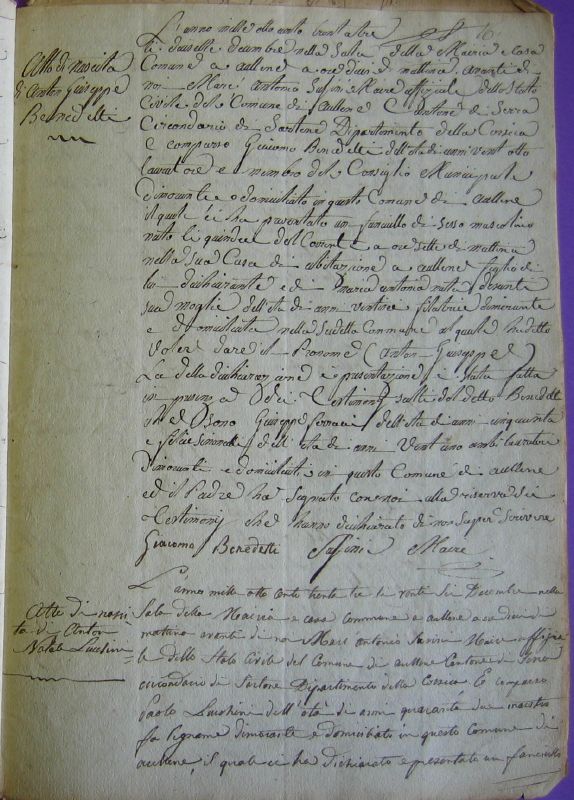 L'anno mille otto cento trenta tre
li dieci sette decembre nella Sala della Mairia e casa
Comune a aullene a ore dieci di mattina avanti di
noi Marc Antonio Maire officiale dello Stato
Civile del Comune di aullene Cantone di Serra
Circondario di Sartene Dipartimento della Corsica
e comparso Giacomo Benedetti dell'età di anni vent otto
lavoratore e membro del Consiglio Municipale
dimorante e domiciliato in questo Comune di aullene
il quale ci ha presentato un fanciullo di sesso mascolino
nato li quindici del Corrente a ore sette di mattina
nella sua Casa di abitazione a aullene figlio di
lui dichiarante e di Maria antonia nata
sua moglie dell'età di anni ventitre filatrice dimorante
e domiciliata nella sudetta Commune al quale ha detto
Voler dare il Pronome (Anton Giuseppe)
La detta dichiarazione e presentazione è stata fatta
in presenza Testimonj del detto Benedetti
Sono Giuseppe dell'età di anni cinquanta
e felice dell'età di anni Vent uno ambi lavoratori
dimoranti e domiciliati in questo Comune di aullene
ed il Padre ha segnato con noi alla riserva dei
Testimonj che hanno dichiarato di non saper scrivere
Giacomo Benedetti Maire
Atto di nascita
di Anton Giuseppe
Benedetti
L'anno mille otto cento trenta tre li venti Decembre nella
Sala della Mairia e casa commune a aullene a ore dieci di
mattino avanti di noi Marc antonio Maire officia
le dello Stato Civile del Comune di aullene Cantone di Serra
circondario di Sartene Dipartimento della Corsica E comparso
Paolo Lucchini dell'età di anni quaranta due maestro
falegname dimorante e domiciliato in questo Comune di
aullene, il quale ci ha dichiarato e presentato un fanciullo
Atto di nasci
ta di Anton
Natale Lucchini